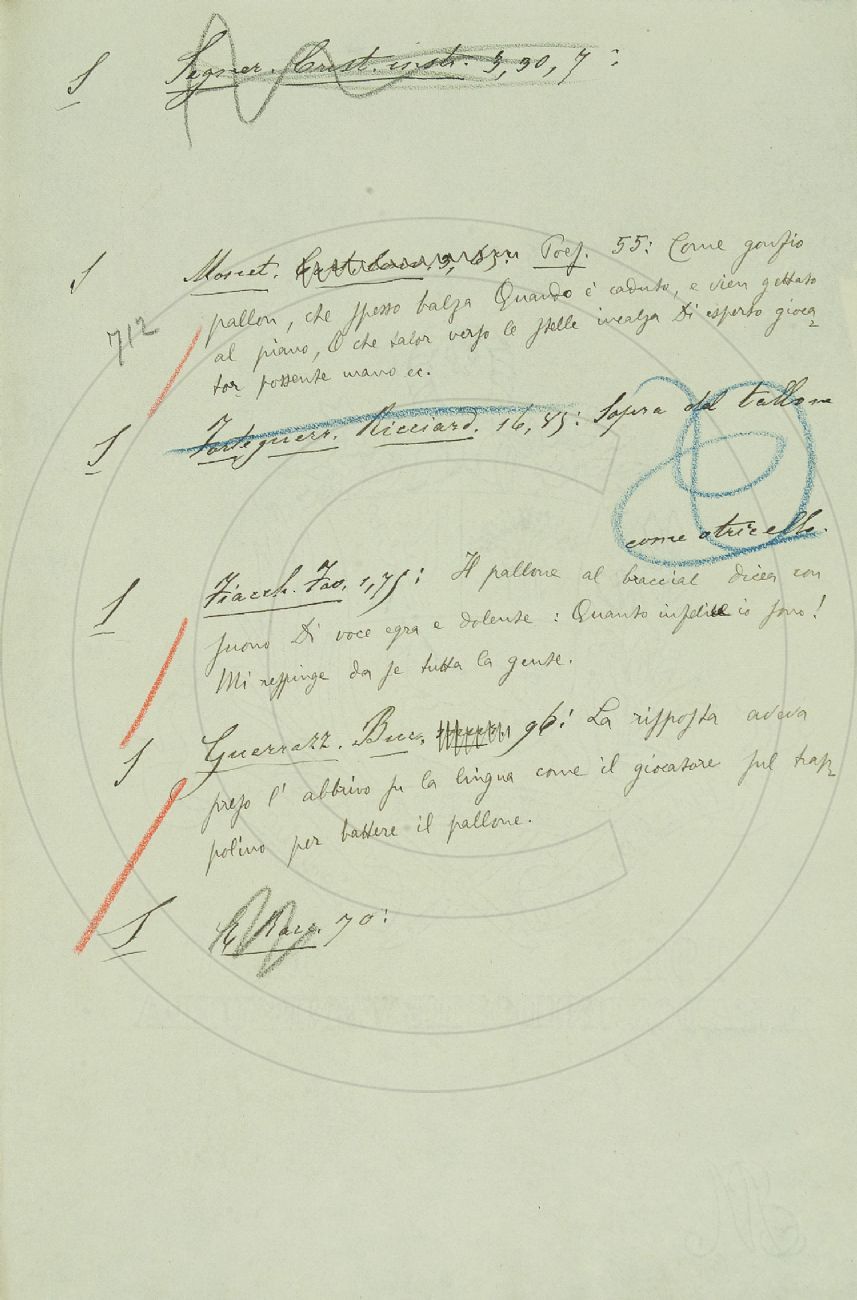 S Segner. Crist. instr. 3, 30, 7:
S Moscet. Poes. 55: Come gonfio
712
pallon, che spesso balza Quando è caduto, e vien gettato
al piano, O che talor verso le stelle incalza Di esperto gioca=
tor possente mano ec.
S Forteguerr. Ricciard. 16, 45: Sopra del tallone
come otricello.
S Fiacch. Fav. 1,75: Il pallone al braccial dicea con
suono Di voce egra e dolente: Quanto infelice io sono!
Mi respinge da se tutta la gente.
S Guerrazz. Buc. 96: La risposta aveva
preso l' abbrivo su la lingua come il giocatore sul tras=
polino per battere il pallone.
S 70: